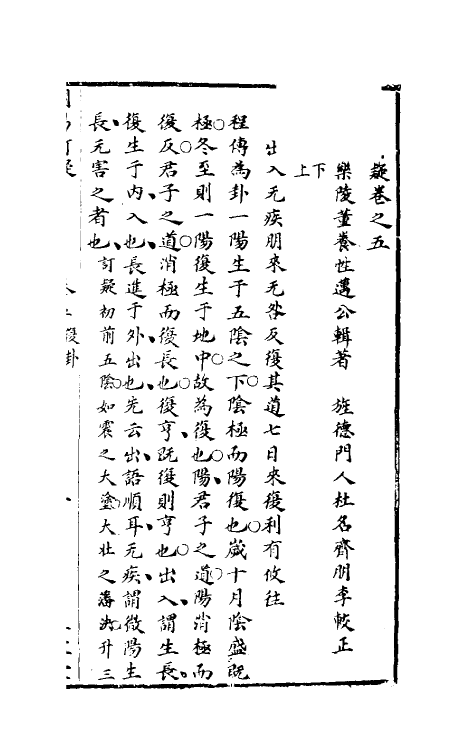 疑卷之五
樂陵董養性邁公輯著 旌德門人杜名齊朋李較正
下
上
出入无疾朋來无咎反復其道七日來復利有攸往
程傳為卦一陽生于五陰之下陰極而陽復也歲十月陰盛既
極冬至則一陽復生于地中故為復也陽君子之道陽消極而
復反君子之道消極而復長也復亨既復則亨也出入謂生長
復生于内入也長進于外出也先云出語順耳无疾謂微陽生
長无害之者也訂疑初前五陰如震之大塗大壯之藩決升三
周易訂疑 復卦